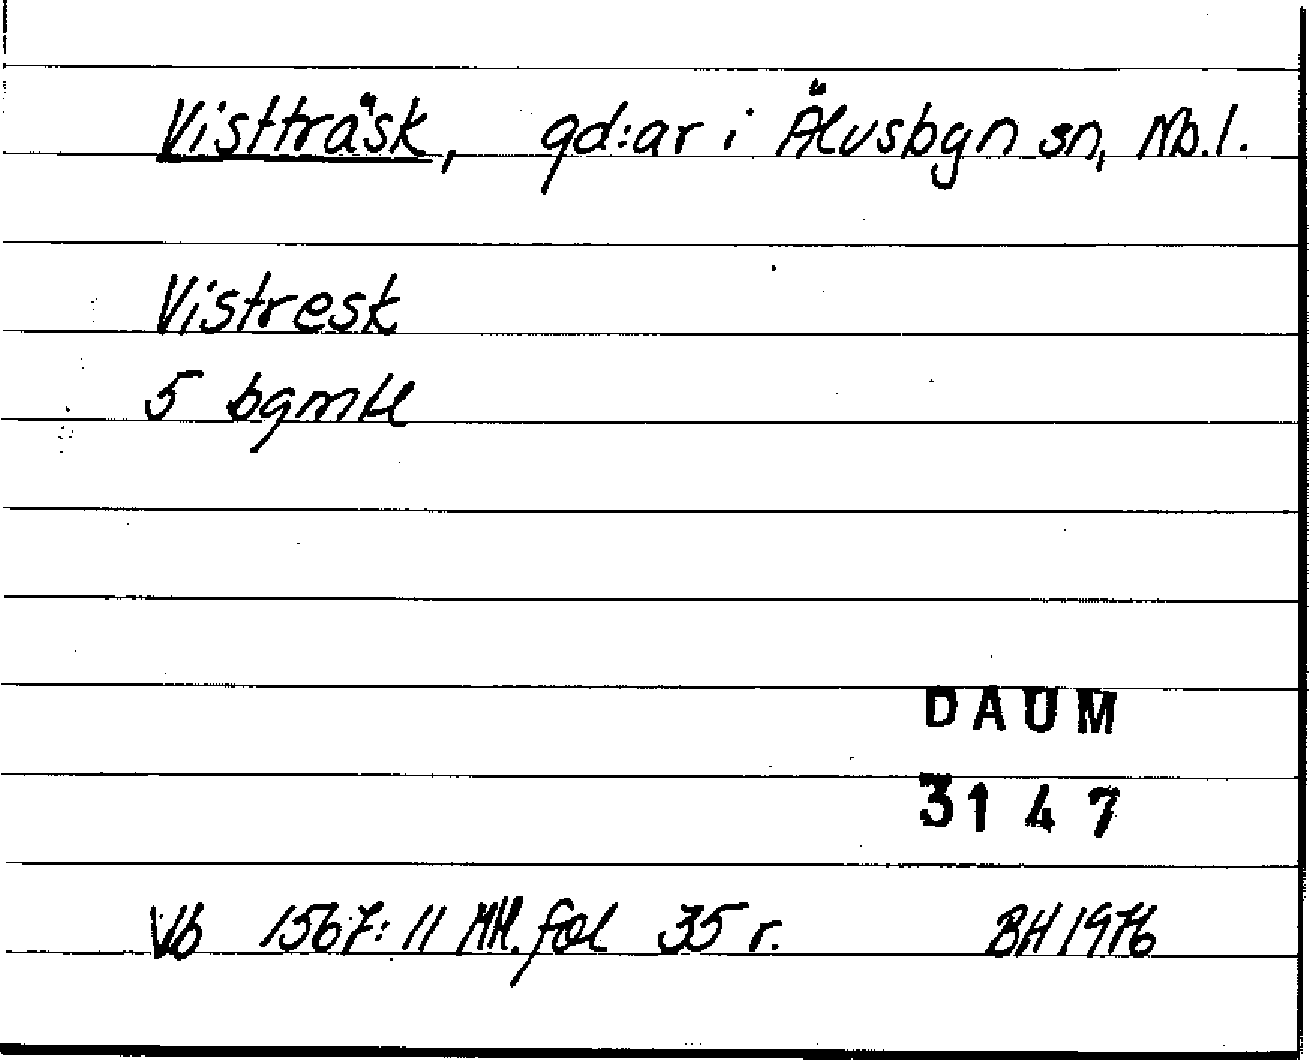 Vistträsk, gd:ar i Älvsbyn sn, Nb.l.
Vistresk
5 bgmtl
DAUM
3147
Vb 1567:11 MH. fol 35 r. BH 1976